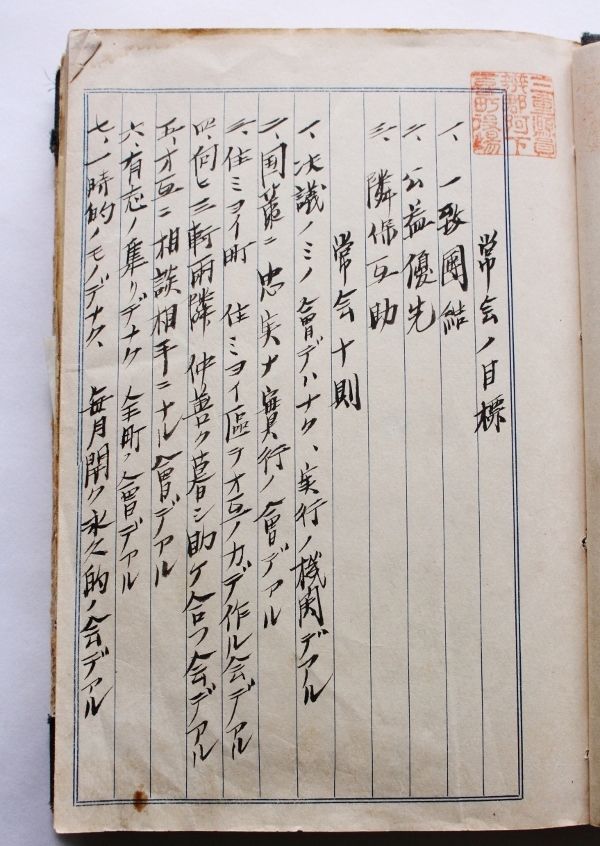 三重縣員
辨郡阿下
喜町役場
常会ノ目標
一、一致團結
二、公益優先
三、隣保互助
常会十則
一、决議ノミノ會デハナク、実行ノ機関デアル
二、国策ニ忠実ナ實行ノ會デアル
三、住ミヨイ町 住ミヨイ區ヲオ互ノ力デ作ル会デアル
四、何ヒ三軒両隣 仲善ク暮シ助ケ合フ会デアル
五、オ互ニ相談相手ニナル會デアル
六、有志ノ集リデナク 全町ノ會デアル
七、一時的ノモノデナク、 毎月開ク永久的ノ会デアル